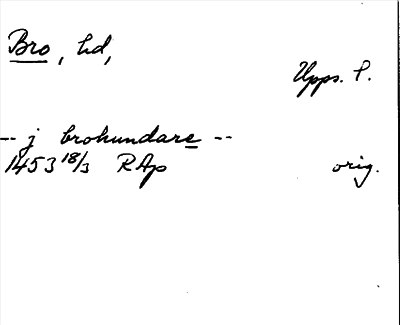 Bro, hd,
Upps. l.
-- j brohundare --
1453 18/3 RAp orig.